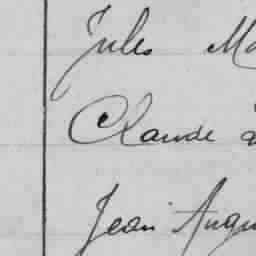 Jules Ma
Claude
Jean Augu